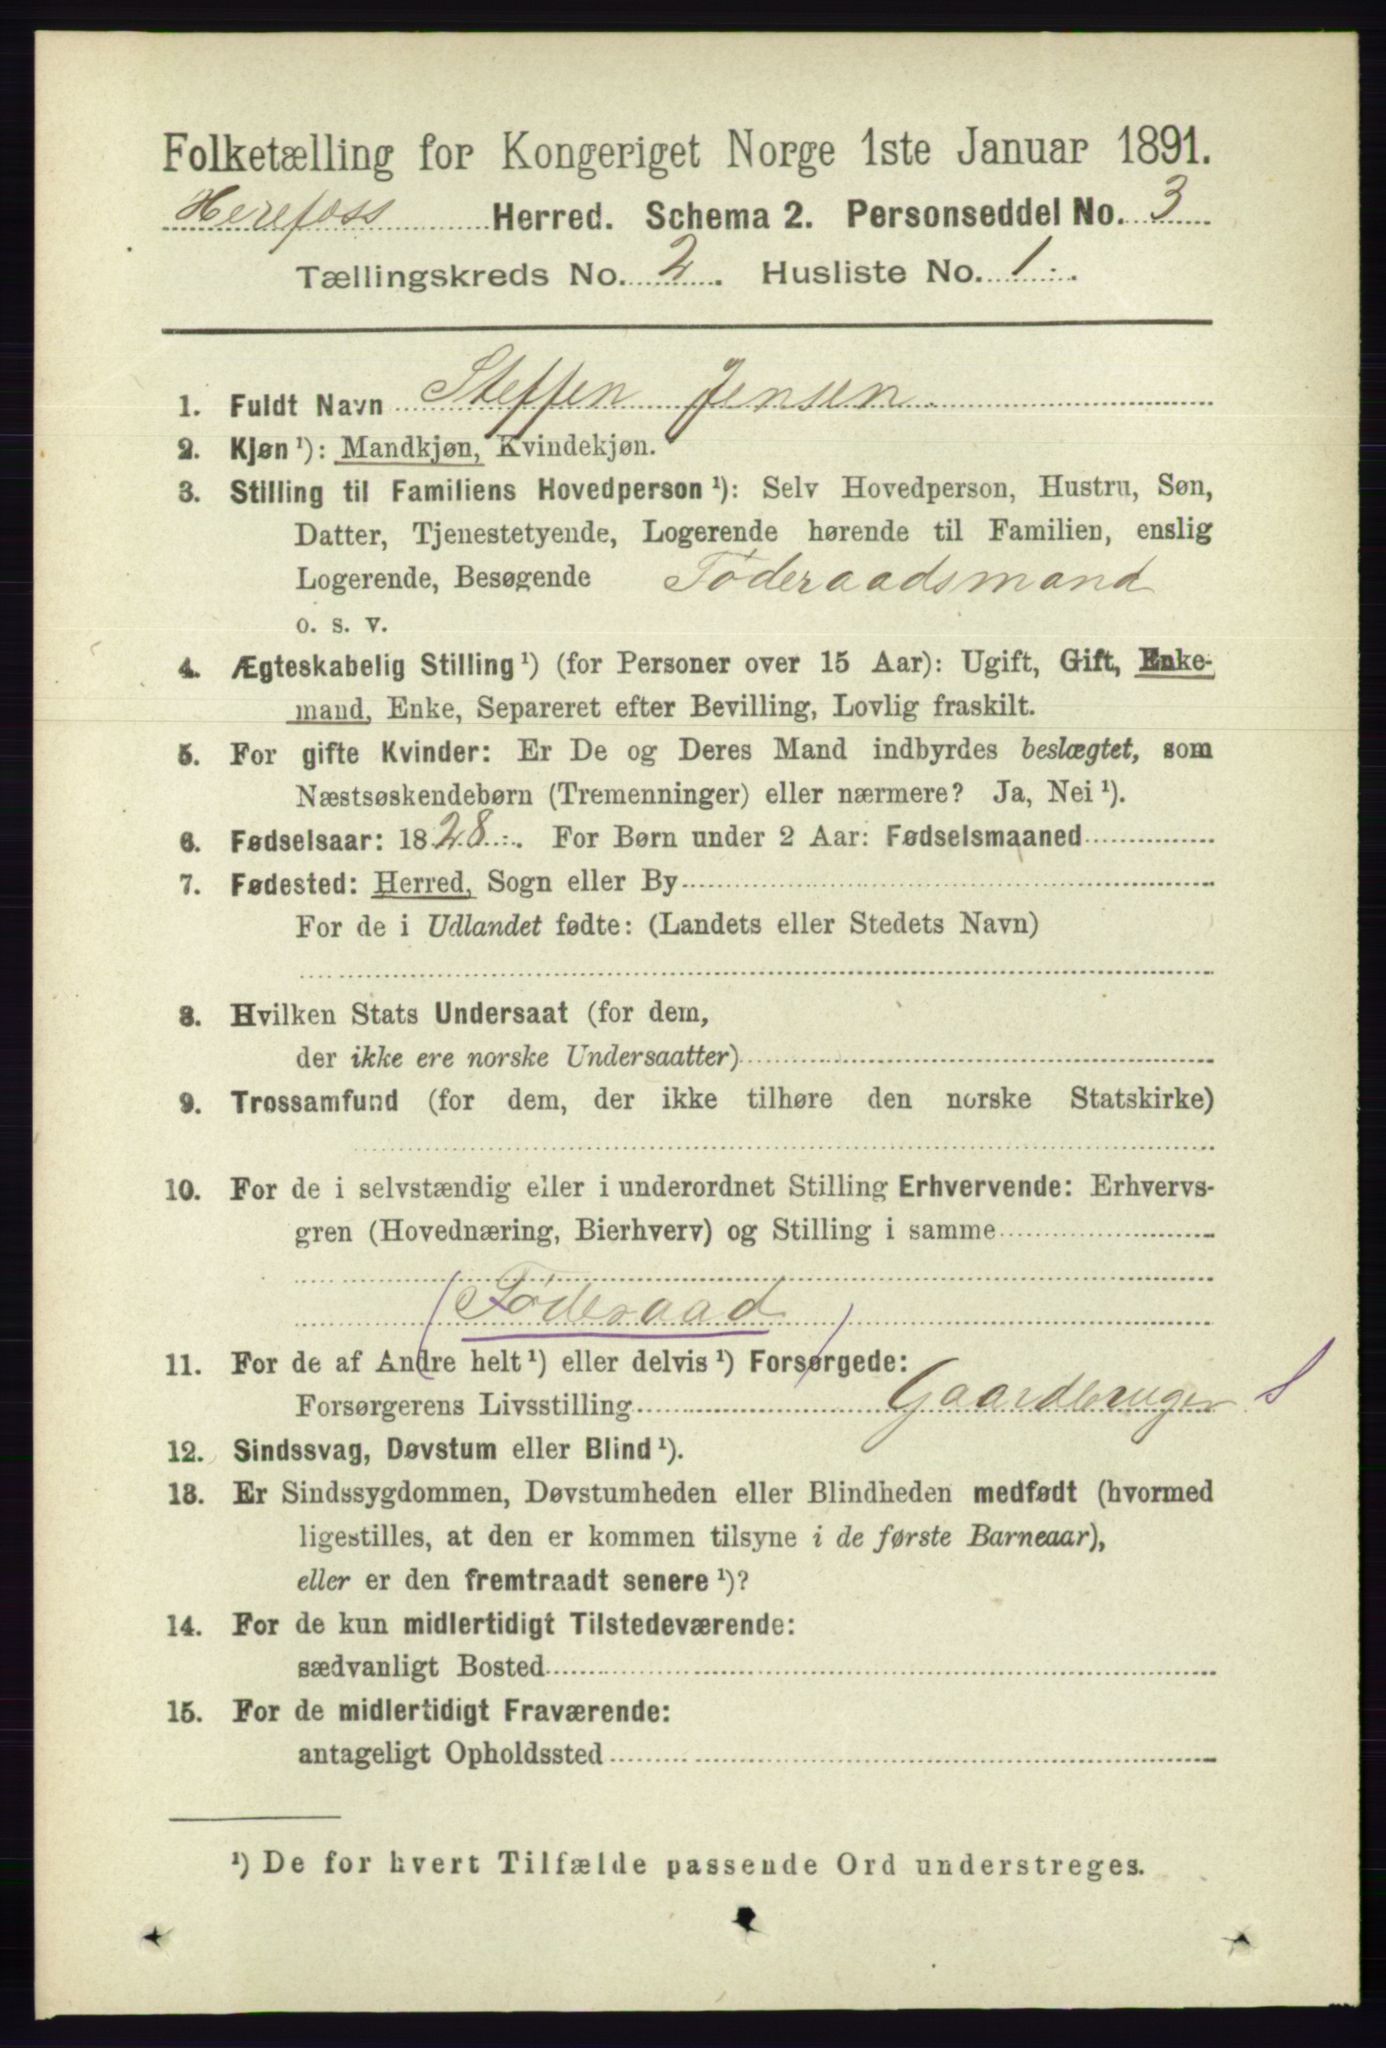 Folketælling for Kongeriget Norge 1ste Januar 1891.
Herefoss Herred. Schema 2. Personseddel No. 3
Tællingskreds No. 2. Husliste No. 1.
1. Fuldt Navn Steffen Jensen
2. Kjøn ¹): Mandkjøn, Kvindekjøn.
3. Stilling til Familiens Hovedperson ¹): Selv Hovedperson, Hustru, Søn,
Datter, Tjenestetyende, Logerende hørende til Familien, enslig
Logerende, Besøgende Føderaadsmand
o. s. v.
4. Ægteskabelig Stilling ¹) (for Personer over 15 Aar): Ugift, Gift, Enke-
mand, Enke, Separeret efter Bevilling, Lovlig fraskilt.
5. For gifte Kvinder: Er De og Deres Mand indbyrdes beslægtet, som
Næstsøskendebørn (Tremenninger) eller nærmere? Ja, Nei ¹).
6. Fødselsaar: 1828. For Børn under 2 Aar: Fødselsmaaned
7. Fødested: Herred, Sogn eller By
For de i Udlandet fødte: (Landets eller Stedets Navn)
8. Hvilken Stats Undersaat (for dem,
der ikke ere norske Undersaatter)
9. Trossamfund (for dem, der ikke tilhøre den norske Statskirke)
10. For de i selvstændig eller i underordnet Stilling Erhvervende: Erhvervs-
gren (Hovednæring, Bierhverv) og Stilling i samme
(Føderaad)
11. For de af Andre helt ¹) eller delvis ¹) Forsørgede:
Forsørgerens Livsstilling Gaardbruger S
12. Sindssvag, Døvstum eller Blind ¹).
13. Er Sindssygdommen, Døvstumheden eller Blindheden medfødt (hvormed
ligestilles, at den er kommen tilsyne i de første Barneaar),
eller er den fremtraadt senere ¹)?
14. For de kun midlertidigt Tilstedeværende:
sædvanligt Bosted
15. For de midlertidigt Fraværende:
antageligt Opholdssted
¹) De for hvert Tilfælde passende Ord understreges.